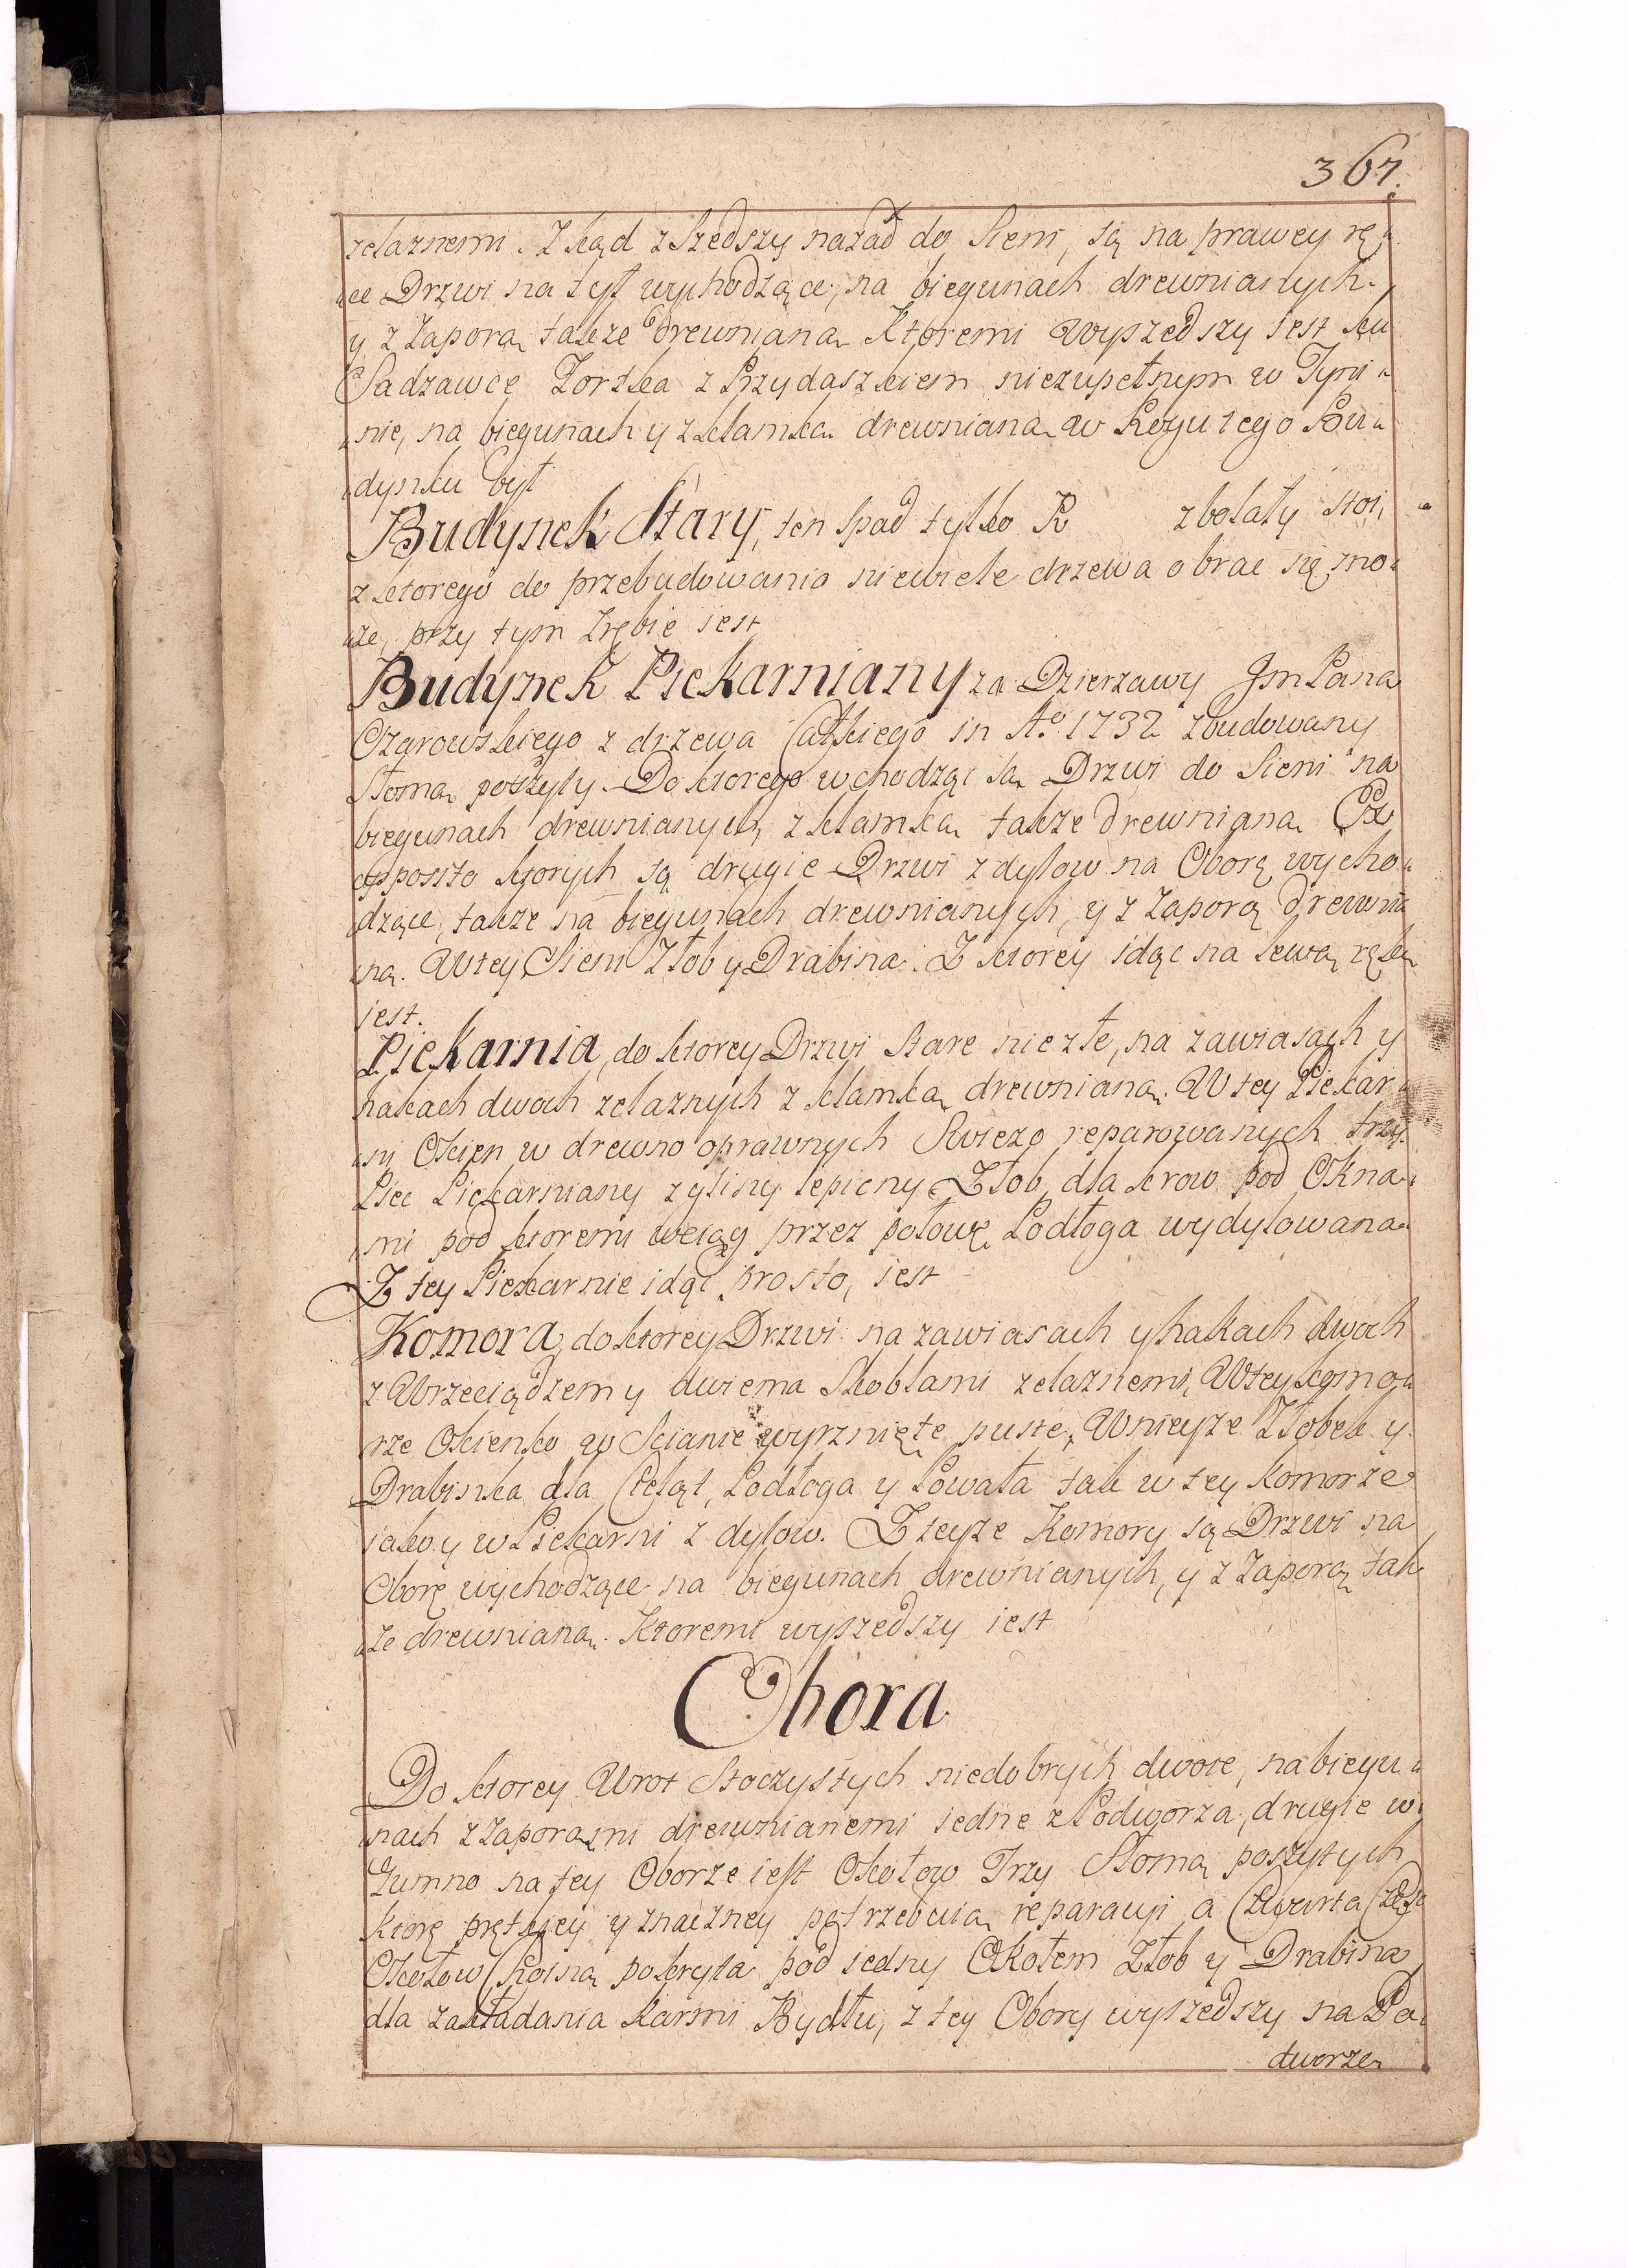 367.
zelaznemi. Zkąd zszedszy nazad do Sieni, są na prawey rę„
„ce Drzwi na tył wychodzące, na biegunach drewnianych
y z Zaporą takze drewnianą. Ktoremi wyszedszy iest ku
Sadzawce Fortka z Przydaszkiem niezupełnym w Tyni„
„nie, na biegunach y z klamką drewnianą w Rogu tego Bu„
„dynku był
Budynek Stary, ten spad tylko R zbotały stoi,
z ktorego do przebudowania niewiele drzewa obrac się mo„
„ze, przy tym Zrębie iest
Budynek Piekarniany za Dzierzawy Jm Pana
Ozarowskiego z drzewa Całkiego in Ao. 1732 zbudowany
Słomą poszyty. Do ktorego wchodząc są Drzwi do Sieni na
biegunach drewnianych, z klamką takze drewnianą Ex
opposito ktorych są drugie Drzwi z dylow na Oborę wycho„
„dzące, takze na biegunach drewnianych, y z Zaporą drewnia
„ną. W tey Sieni Złob y Drabina. Z ktorey idąc na lewą rękę
iest.
Piekarnia, do ktorey Drzwi stare nie złe, na zawiasach y
hakach dwoch zelaznych z klamką drewnianą. W tey Piekar„
„ni Okien w drewno oprawnych Swiezo reparowanych trzy.
Piec Piekarniany z gliny lepiony Złob dla krow pod Okna„
„mi pod ktoremi wciąg przez połowę Podłoga wydylowana
Z tey Piekarnie idąc prosto, iest
Komora, do ktorey Drzwi na zawiasach y hakach dwoch
z Wrzeciądzem y dwiema Skoblami zelaznemi, W tey komo„
rze Okienko w Scianie wyrznięte puste, W nieyze Złobek y
Drabinka dla Cieląt, Podłoga y Powała tak w tey komorze
iako y w Piekarni z dylow. Z teyze Komory są Drzwi na
Oborę wychodzące na biegunach drewnianych, y z Zaporą tak
„ze drewnianą. Ktoremi wyszedszy iest
Obora
Do ktorey Wrot Stoczystych niedobrych dwoie, na biegu„
„nach z Zaporami drewnianemi iedne z Podwgorza, drugie w
Gumno na tey Oborze iest Okołow Trzy Słomą poszytych
ktore prętkiey y znaczney potrzebuią reparacyi a Czwarta Część
Okołow Choiną pokryta pod iedny Okołem Złob y Drabina
dla zakładania karmi Bydłu, z tey Obory wyszedszy na Po„
dworze